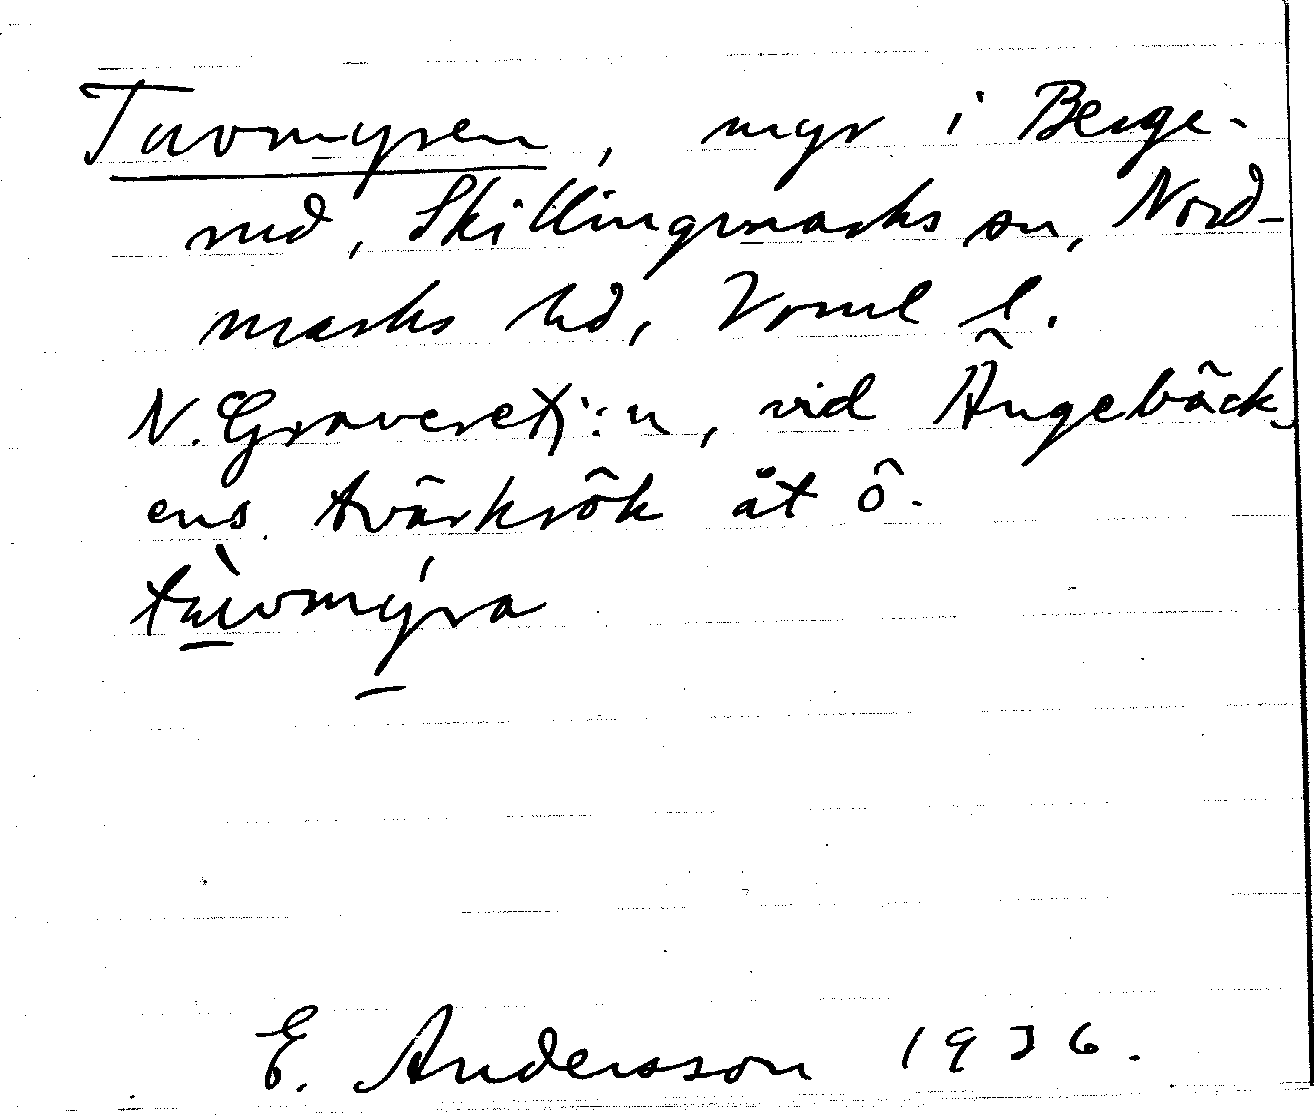 Tuvmyren, myr i Berge-
rud, Skillingmarks sn, Nord-
marks hd, Vrml l.
N. Graveretj:n, vid Ängebäck-
ens tvärkrök åt ö.
tùvmýra
E. Andersson 1936.